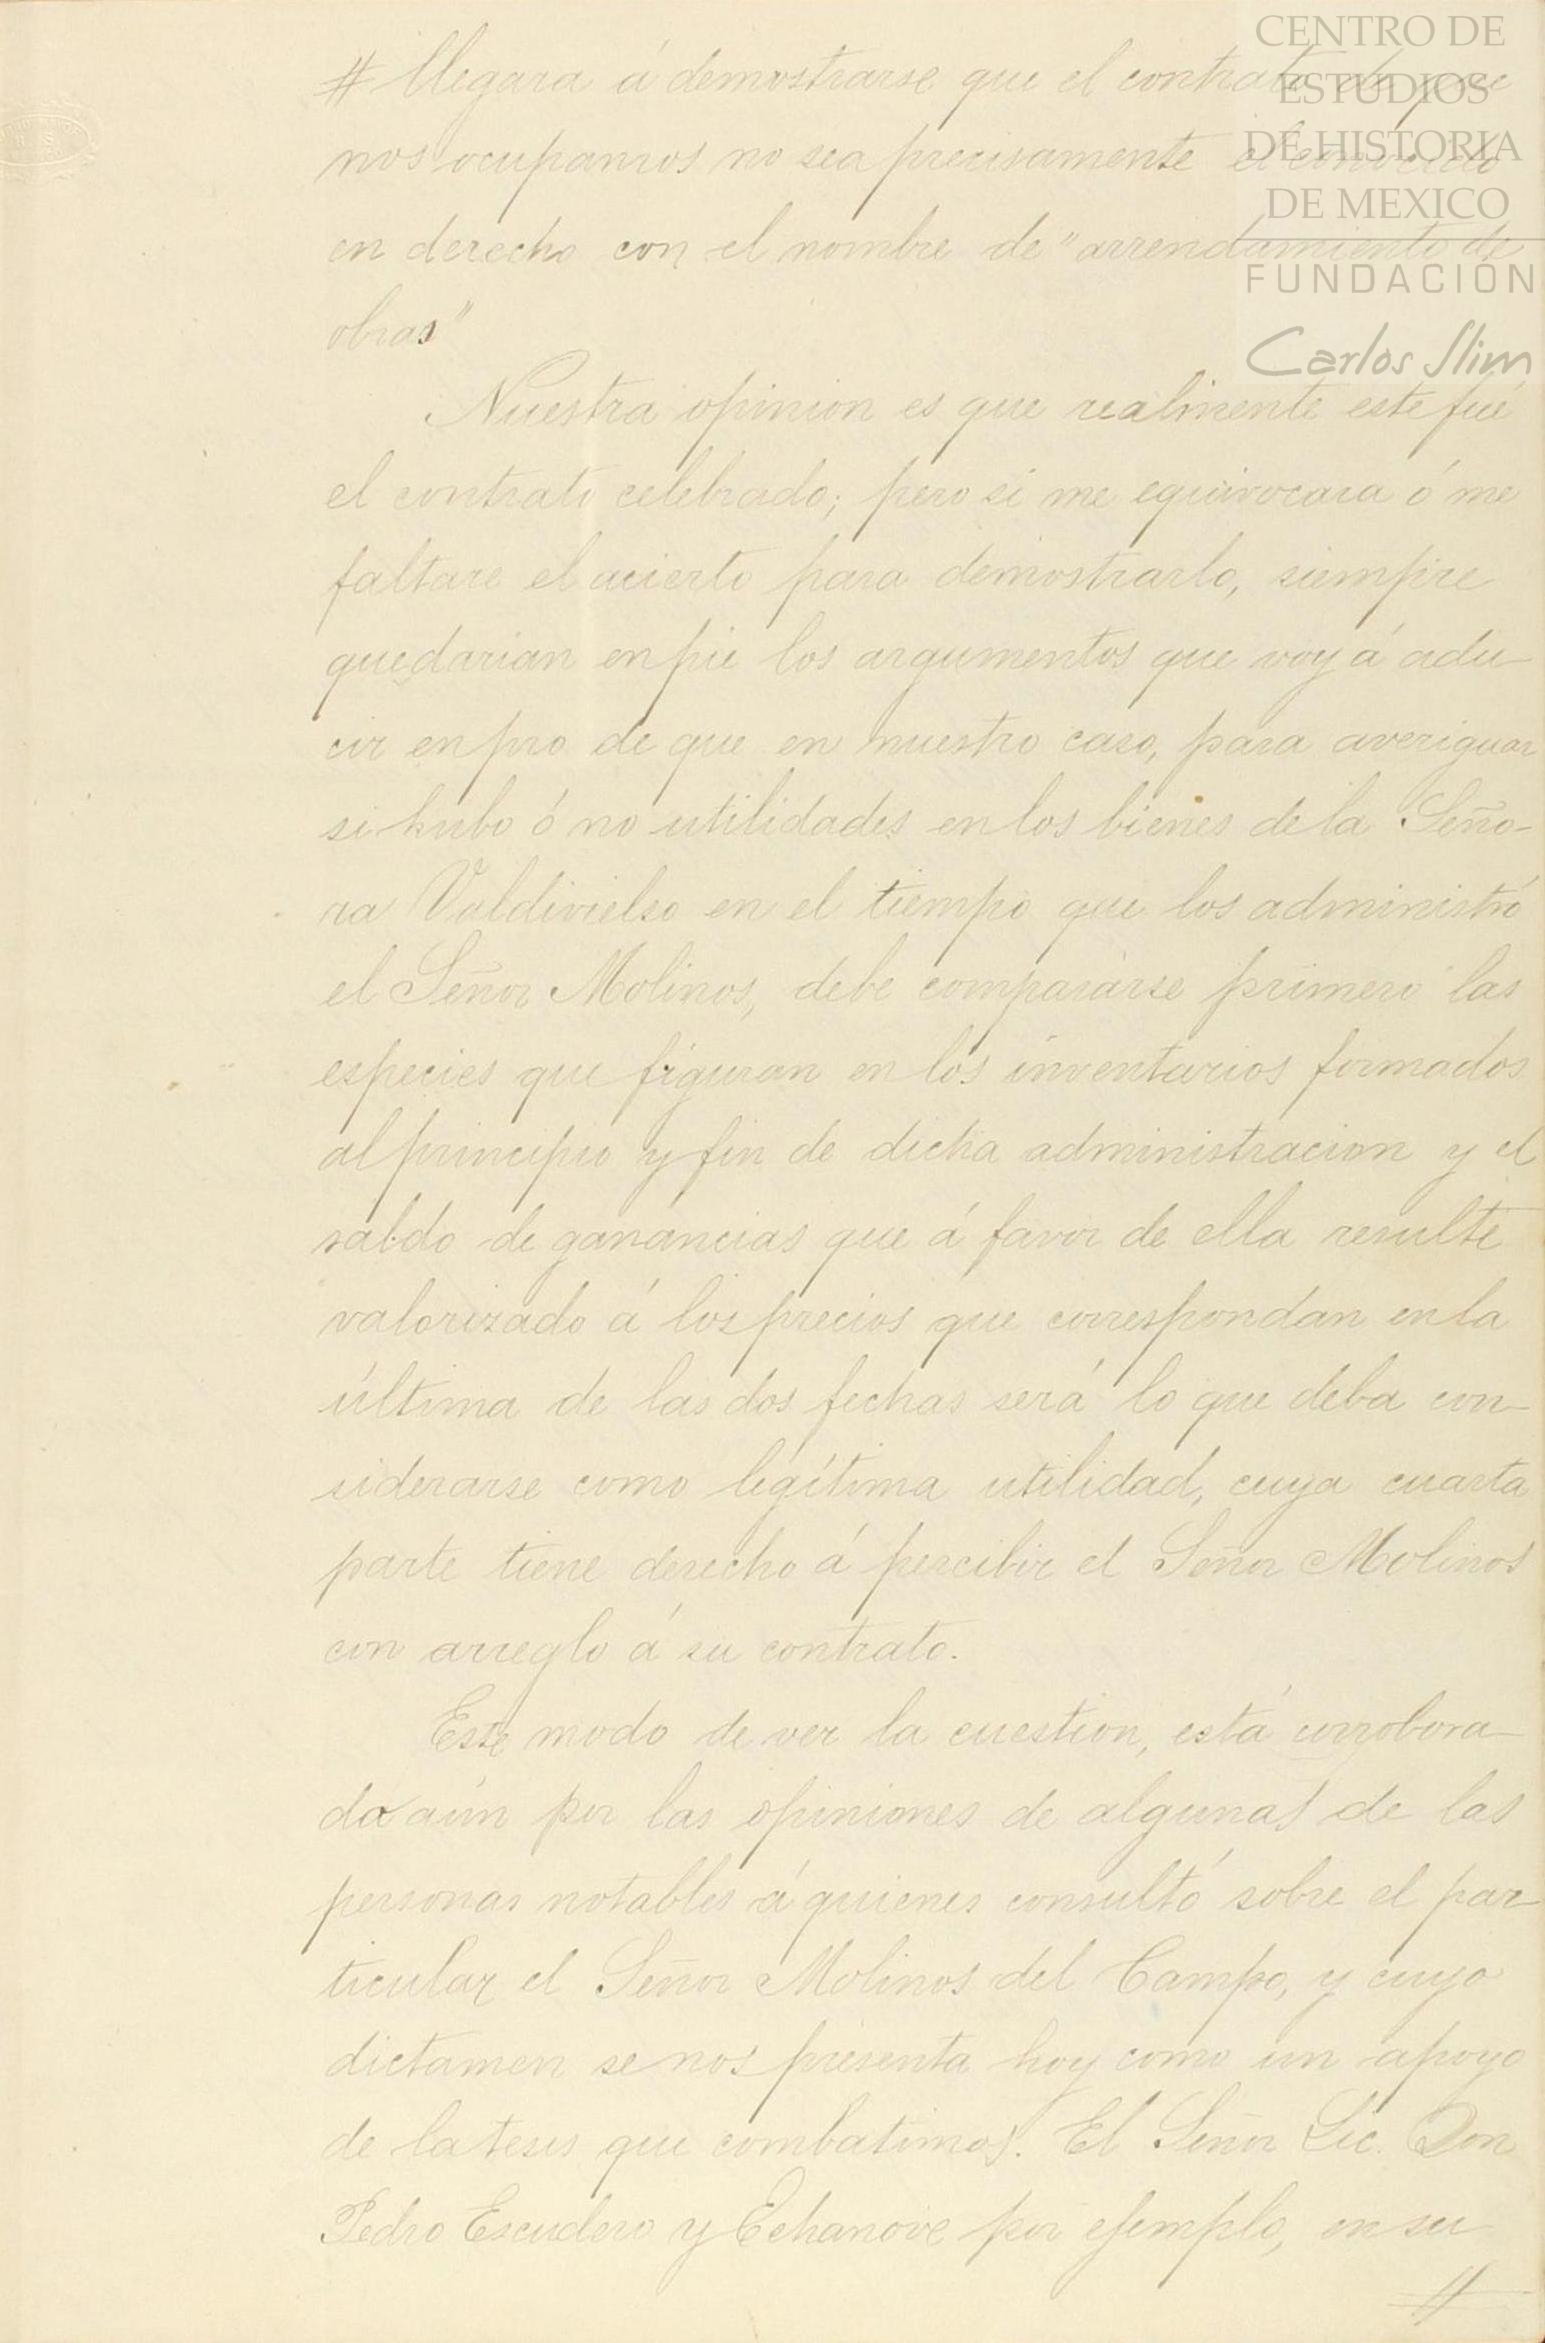 CENTRO DE
ESTUDIOS
DE HISTORIA
DE MEXICO
FUNDACIÓN
Carlos Slim
# llegara á demostrarse que el contrato de que
nos ocupamos no sea precisamente el conocido
en derecho con el nombre de "arrendamiento de
obras"
Nuestra opinion es que realmente este fué
el contrato celebrado; pero si me equivocara ó me
faltare el acierto para demostrarlo, siempre
quedarian en pie los argumentos que voy á adu-
cir en pro de que en nuestro caso, para averiguar
si hubo ó no utilidades en los bienes de la Seño-
ra Valdivielso en el tiempo que los administró
el Señor Molinos, debe compararse primero las
especies que figuran en los inventarios formados
al principio y fin de dicha administracion y el
saldo de ganancias que á favor de ella resulte
valorizado á los precios que correspondan en la
última de las dos fechas será lo que deba con-
siderarse como legítima utilidad, cuya cuarta
parte tiene derecho á percibir el Señor Molinos
con arreglo á su contrato.
Este modo de ver la cuestion, está corrobora-
do aún por las opiniones de algunas de las
personas notables á quienes consultó sobre el par-
ticular el Señor Molinos del Campo, y cuyo
dictamen se nos presenta hoy como un apoyo
de la tesis que combatimos. El Señor Lic. Don
Pedro Escudero y Echanove por ejemplo, en su
#